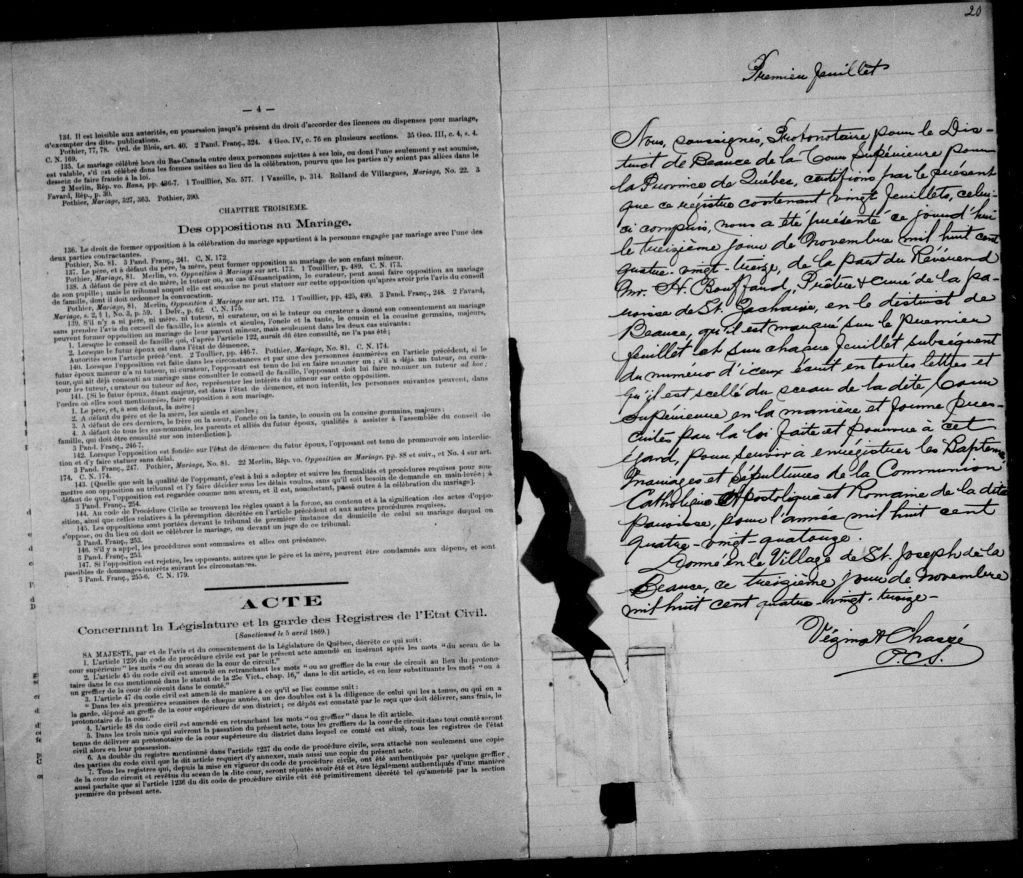 — 4 —
134. Il est loisible aux autorités, en possession jusqu'à présent du droit d'accorder des licences ou dispenses pour mariage,
d'exempter des dites publications.
Pothier, 77, 78. Ord. de Blois, art. 40. 2 Pand. Franç., 324. 4 Geo. IV, c. 76 en plusieurs sections. 35 Geo. III, c. 4, s. 4.
C. N. 169.
135. Le mariage célébré hors du Bas-Canada entre deux personnes sujettes à ses lois, ou dont l'une seulement y est soumise,
est valable, s'il est célébré dans les formes usitées au lieu de la célébration, pourvu que les parties n'y soient pas allées dans le
dessein de faire fraude à la loi.
2 Merlin, Rép. vo. Bans, pp. 436-7. 1 Touillier, No. 577. 1 Vazeille, p. 314. Rolland de Villargues, Mariage, No. 22. 3
Favard, Rép., p. 30.
Pothier, Mariage, 327, 363. Pothier, 390.
CHAPITRE TROISIEME.
Des oppositions au Mariage.
136. Le droit de former opposition à la célébration du mariage appartient à la personne engagée par mariage avec l'une des
deux parties contractantes.
Pothier, No. 81. 3 Pand. Franç., 241. C. N. 172.
137. Le père, et à défaut du père, la mère, peut former opposition au mariage de son enfant mineur.
Pothier, Mariage, 81. Merlin, vo. Opposition à Mariage sur art. 173. 1 Touillier, p. 489. C. N. 173.
138. A défaut de père et de mère, le tuteur ou, au cas d'émancipation, le curateur, peut aussi faire opposition au mariage
de son pupille; mais le tribunal auquel elle est soumise ne peut statuer sur cette opposition qu'après avoir pris l'avis du conseil
de famille, dont il doit ordonner la convocation.
Pothier, Mariage, 81. Merlin, Opposition à Mariage sur art. 172. 1 Touillier, pp. 425, 490. 3 Pand. Franç., 248. 2 Favard,
Mariage, s. 2, § 1, No. 3, p. 59. 1 Delv., p. 62. C. N. 175.
139. S'il n'y a ni père, ni mère, ni tuteur, ni curateur, ou si le tuteur ou curateur a donné son consentement au mariage
sans prendre l'avis du conseil de famille, les aïeuls et aïeules, l'oncle et la tante, le cousin et la cousine germains, majeurs,
peuvent former opposition au mariage de leur parent mineur, mais seulement dans les deux cas suivants:
1. Lorsque le conseil de famille qui, d'après l'article 122, aurait dû être consulté, ne l'a pas été;
2. Lorsque le futur époux est dans l'état de démence.
Autorités sous l'article précédent. 2 Touillier, pp. 446-7. Pothier, Mariage, No. 81. C. N. 174.
140. Lorsque l'opposition est faite dans les circonstances et par une des personnes énumérées en l'article précédent, si le
futur époux mineur n'a ni tuteur, ni curateur, l'opposant est tenu de lui en faire nommer un; s'il a déjà un tuteur, ou cura-
teur, qui ait déjà consenti au mariage sans consulter le conseil de famille, l'opposant doit lui faire nommer un tuteur ad hoc;
pour les tuteur, curateur ou tuteur ad hoc, représenter les intérêts du mineur sur cette opposition.
141. [Si le futur époux, étant majeur, est dans l'état de démence, et non interdit, les personnes suivantes peuvent, dans
l'ordre où elles sont mentionnées, faire opposition à son mariage.
1. Le père, et, à son défaut, la mère;
2. A défaut du père et de la mère, les aïeuls et aïeules;
3. A défaut de ces derniers, le frère ou la sœur, l'oncle ou la tante, le cousin ou la cousine germains, majeurs;
4. A défaut de tous les sus-nommés, les parents et alliés du futur époux, qualifiés à assister à l'assemblée du conseil de
famille, qui doit être consulté sur son interdiction].
3 Pand. Franç., 246-7.
142. Lorsque l'opposition est fondée sur l'état de démence du futur époux, l'opposant est tenu de promouvoir son interdic-
tion et d'y faire statuer sans délai.
3 Pand. Franç., 247. Pothier, Mariage, No. 81. 22 Merlin, Rép. vo. Opposition au Mariage, pp. 88 et suiv., et No. 4 sur art.
174. C. N. 174.
143. [Quelle que soit la qualité de l'opposant, c'est à lui à adopter et suivre les formalités et procédures requises pour sou-
mettre son opposition au tribunal et l'y faire décider sous les délais voulus, sans qu'il soit besoin de demande en main-levée; à
défaut de quoi, l'opposition est regardée comme non avenu, et il est, nonobstant, passé outre à la célébration du mariage].
3 Pand. Franç., 254.
144. Au code de Procédure Civile se trouvent les règles quant à la forme, au contenu et à la signification des actes d'oppo-
sition, ainsi que celles relatives à la péremption décrétée en l'article précédent et aux autres procédures requises.
145. Les oppositions sont portées devant le tribunal de première instance du domicile de celui au mariage duquel on
s'oppose, ou du lieu où doit se célébrer le mariage, ou devant un juge de ce tribunal.
3 Pand. Franç., 253.
146. S'il y a appel, les procédures sont sommaires et elles ont préséance.
3 Pand. Franç., 253.
147. Si l'opposition est rejetée, les opposants, autres que le père et la mère, peuvent être condamnés aux dépens, et sont
passibles de dommages-intérêts suivant les circonstances.
3 Pand. Franç., 255-6. C. N. 179.
ACTE
Concernant la Législature et la garde des Registres de l'Etat Civil.
[Sanctionné le 5 avril 1869.]
SA MAJESTE, par et de l'avis et du consentement de la Législature de Québec, décrète ce qui suit:
1. L'article 1236 du code de procédure civile est par le présent acte amendé en insérant après les mots "du sceau de la
cour supérieure" les mots "ou du sceau de la cour de circuit."
2. L'article 45 du code civil est amendé en retranchant les mots "ou au greffier de la cour de circuit au lieu du protono-
taire dans le cas mentionné dans le statut de la 25e Vict., chap. 16," dans le dit article, et en leur substituant les mots "ou à
un greffier de la cour de circuit dans le comté."
3. L'article 47 du code civil est amendé de manière à ce qu'il se lise comme suit:
"Dans les six premières semaines de chaque année, un des doubles est à la diligence de celui qui les a tenus, ou qui en a
la garde, déposé au greffe de la cour supérieure de son district; ce dépôt est constaté par le reçu que doit délivrer, sans frais, le
protonotaire de la cour."
4. L'article 48 du code civil est amendé en retranchant les mots "ou greffier" dans le dit article.
5. Dans les trois mois qui suivront la passation du présent acte, tous les greffiers de la cour de circuit dans tout comté seront
tenus de délivrer au protonotaire de la cour supérieure du district dans lequel ce comté est situé, tous les registres de l'état
civil alors en leur possession.
6. Au double du registre mentionné dans l'article 1237 du code de procédure civile, sera attaché non seulement une copie
des parties du code civil que le dit article requiert d'y annexer, mais aussi une copie du présent acte.
7. Tous les registres qui, depuis la mise en vigueur du code de procédure civile, ont été authentiqués par quelque greffier
de la cour de circuit et revêtus du sceau de la dite cour, seront réputés avoir été et être légalement authentiqués d'une manière
aussi parfaite que si l'article 1236 du dit code de procédure civile eût été primitivement décrété tel qu'amendé par la section
première du présent acte.
20
Premier feuillet
Nous, soussignés, Protonotaire pour le Dis-
trict de Beauce de la Cour Supérieure pour
la Province de Québec, certifions par le présent
que ce régistre contenant vingt feuillets, celui-
ci compris, nous a été présenté ce jourd'hui
le treizième jour de Novembre mil huit cent
quatre-vingt-treize, de la part du Révérend
Mr. H. Bouffard, Prêtre & curé de la pa-
roisse de St. Zacharie, en le district de
Beauce, qu'il est marqué sur le premier
feuillet et sur chaque feuillet subséquent
du numero d'iceux écrit en toutes lettres et
qu'il est scellé du sceau de la dite Cour
Supérieure en la manière et forme pres-
crites par la loi faite et pourvue à cet
égard, pour servir à enrégistrer les Baptêmes
Mariages et Sépultures de la Communion
Catholique Apostolique et Romaine de la dite
paroisse, pour l'année mil huit cent
quatre-vingt-quatorze.
Donné en le Village de St. Joseph de la
Beauce, ce treizième jour de Novembre
mil huit cent quatre-vingt-treize-
Vézina & Chassé
P.C.S.